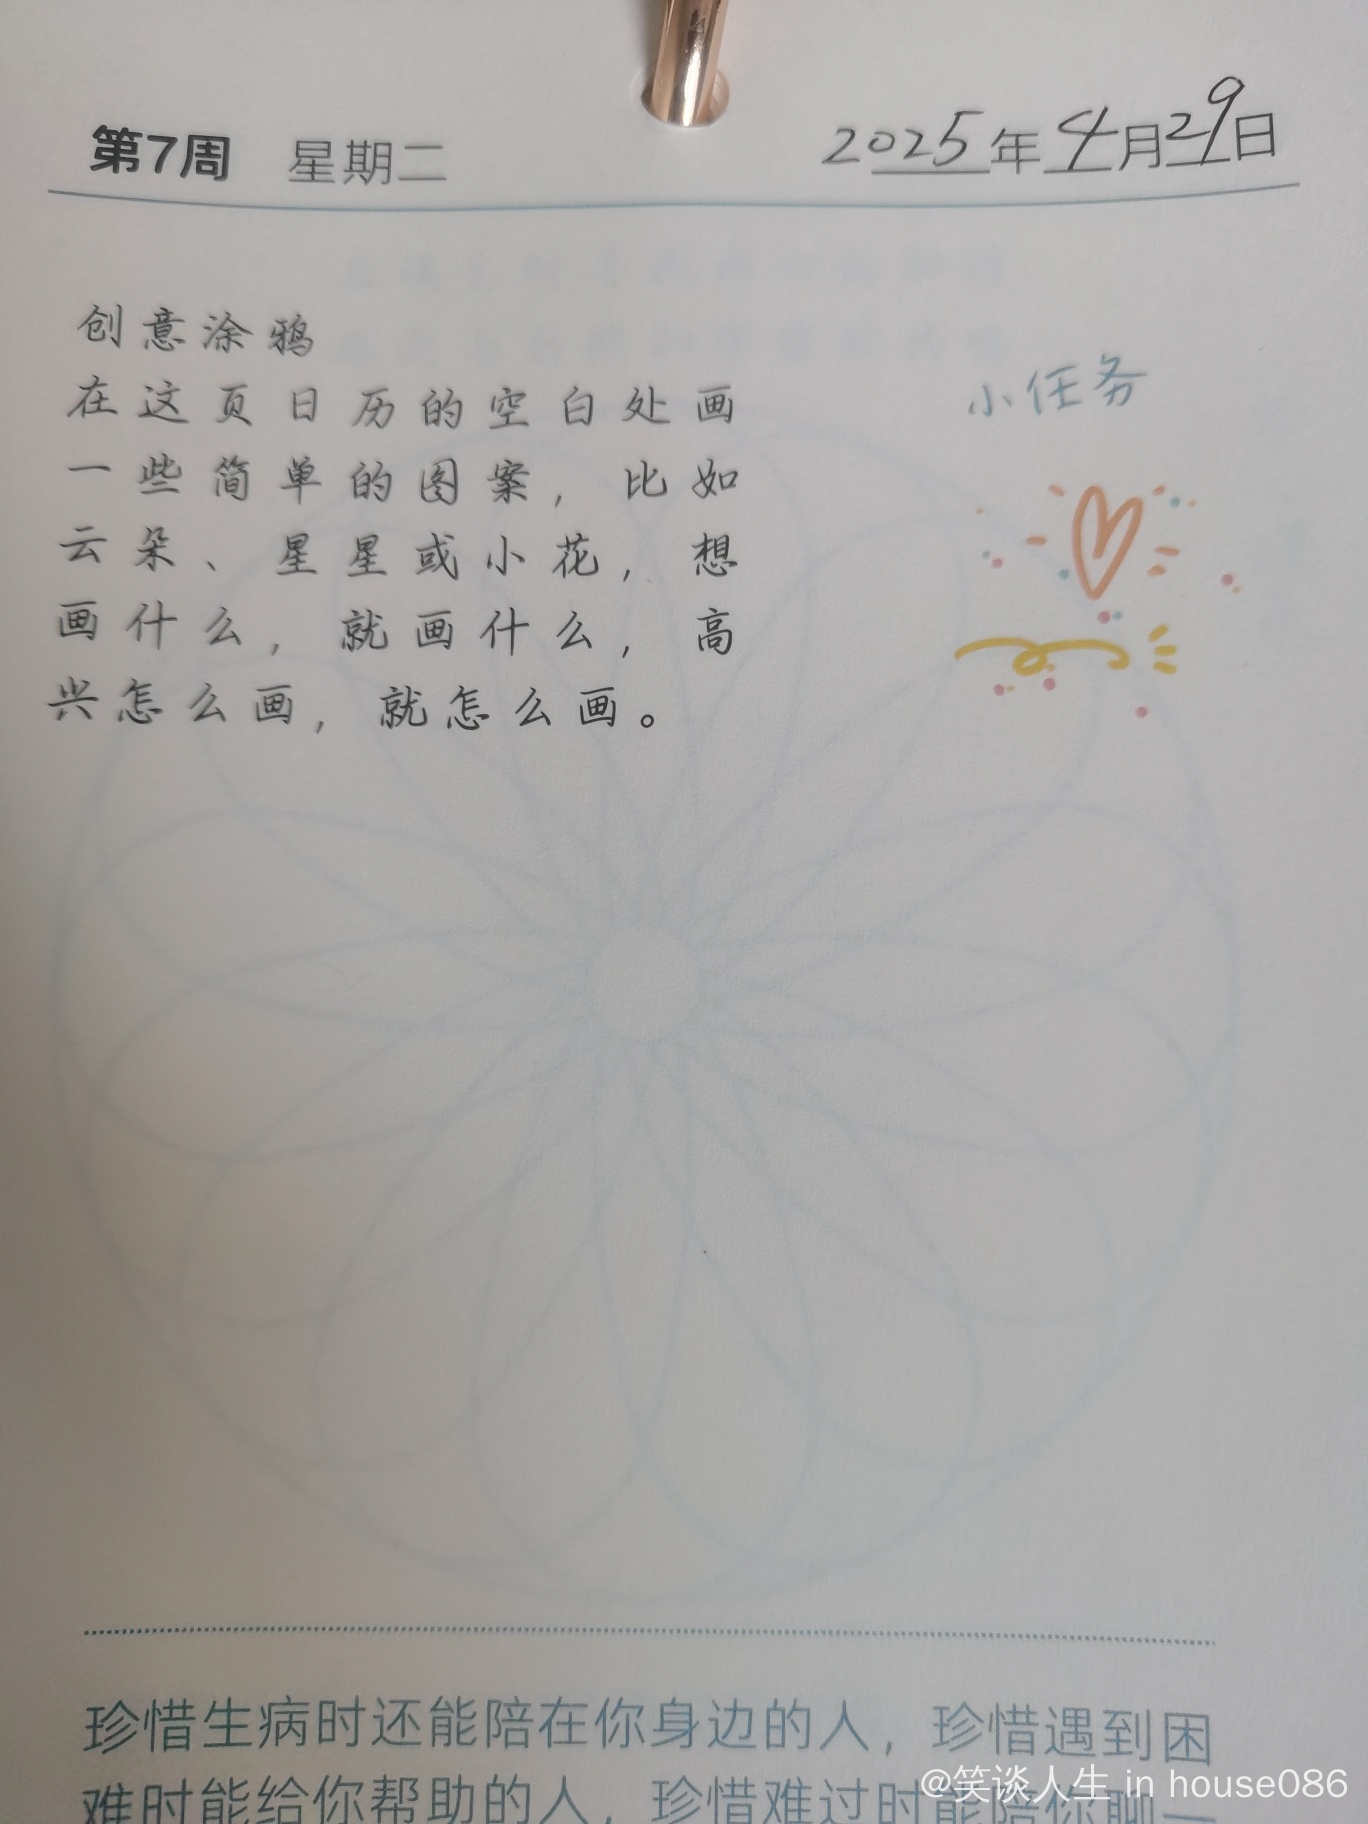 第7周 星期二 2025年4月29日
创意涂鸦
在这页日历的空白处画
一些简单的图案，比如
云朵、星星或小花，想
画什么，就画什么，高
兴怎么画，就怎么画。
小任务
珍惜生病时还能陪在你身边的人，珍惜遇到困
难时能给你帮助的人，珍惜难过时能陪你聊一
@笑谈人生 in house086